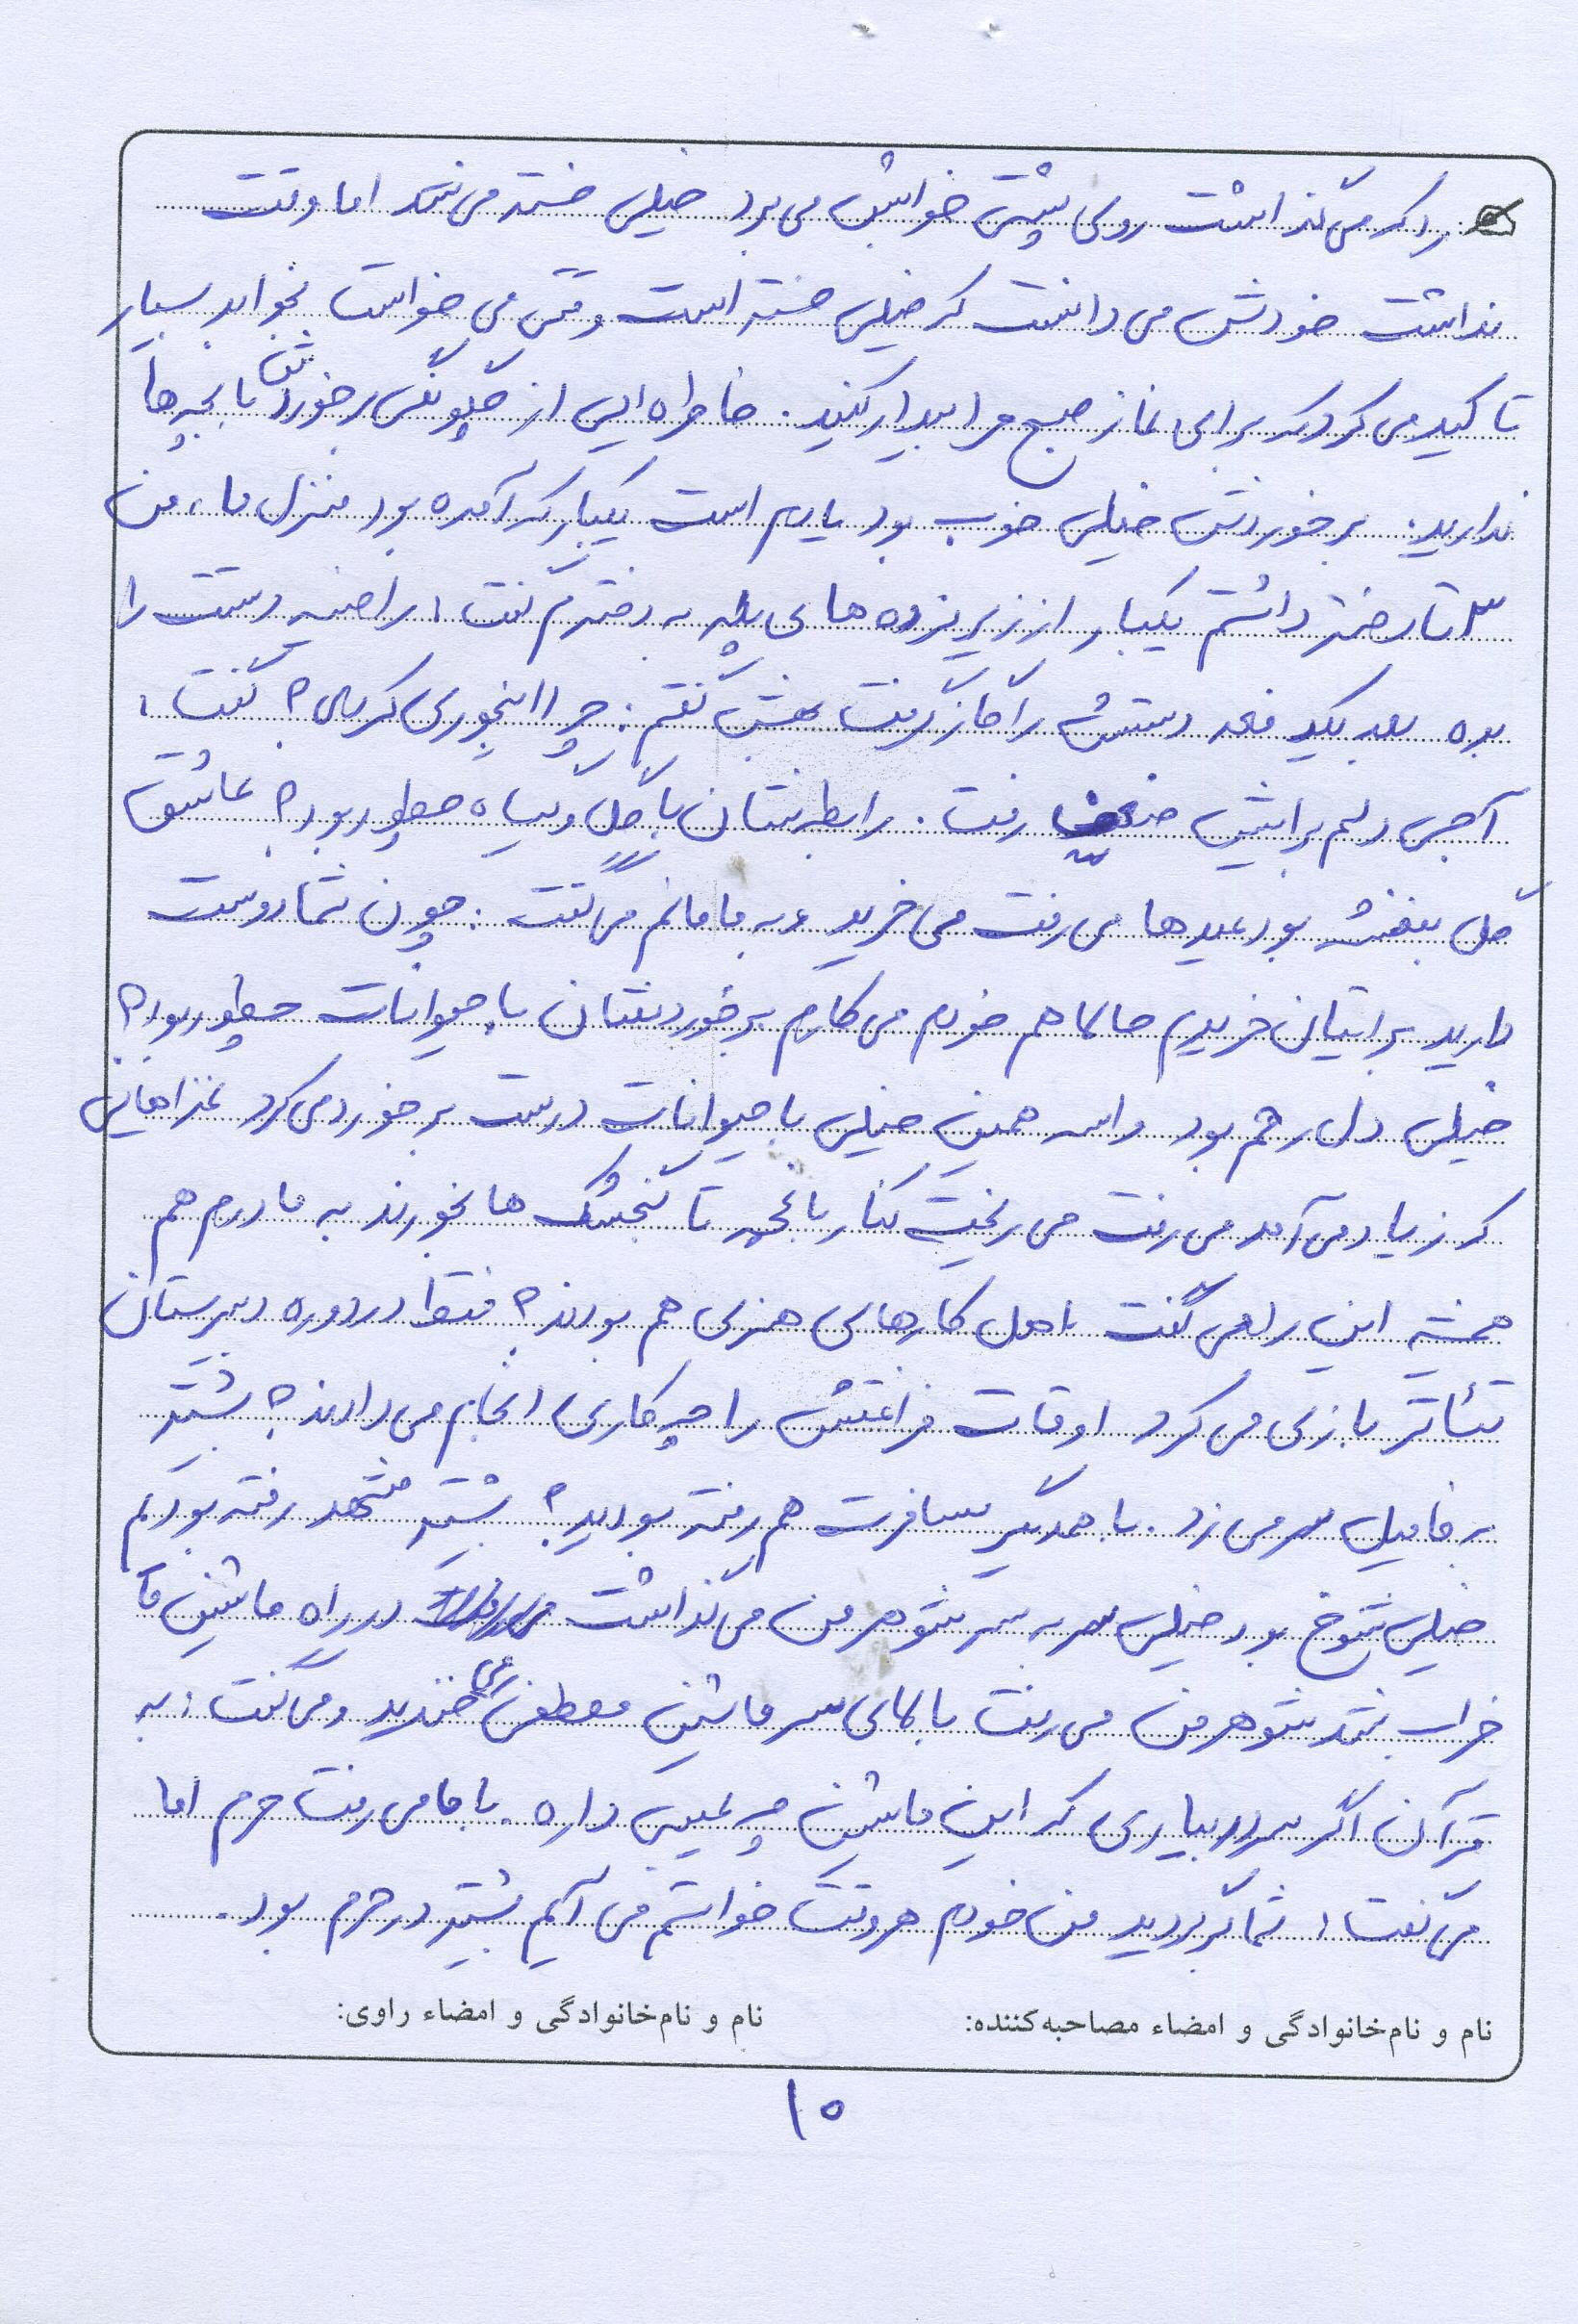 را که می گذاشت روی پشتی خوابش می برد خیلی خسته می شد اما وقت
نداشت خودش می دانست که خیلی خسته است وقتی می خواست بخوابد بسیار
تاکید می کرد که برای نماز صبح مرا بیدار کنید. خاطره ایی از چگونگی برخوردشان با بچه ها
ندارید: برخوردش خیلی خوب بود یادم است یکبار که آمده بود منزل ما، من
۳ تا دختر داشتم یکبار از زیر نرده های پله به دخترم گفت: راضیه دستت را
بده بعد یک دفعه دستش را گاز گرفت بهش گفتم: چرا اینجوری کردی؟ گفت:
آجی دلم برایش ضعف رفت. رابطه شان با گل و گیاه چطور بود؟ عاشق
گل بنفشه بود عیدها می رفت می خرید و به مامانم می گفت: چون شما دوست
دارید برایتان خریدم حالا هم خودم می کارم برخوردشان با حیوانات چطور بود؟
خیلی دل رحم بود واسه همین خیلی با حیوانات درست برخورد می کرد غذاهایی
که زیاد می آمد می رفت می ریخت کنار باغچه تا گنجشک ها بخورند به مادرم هم
همیشه این را می گفت اهل کارهای هنری هم بودند؟ فقط در دوره دبیرستان
تئاتر بازی می کرد اوقات فراغتش را چه کاری انجام می دادند؟ بیشتر
به فامیل سر می زد. با همدیگر مسافرت هم رفته بودید؟ بیشتر مشهد رفته بودیم
خیلی شوخ بود خیلی سر به سر شوهر من می گذاشت در راه ماشین ما
خراب شد شوهر من می رفت بالای سر ماشین مصطفی می خندید و می گفت: به
قرآن اگر سر در بیاری که این ماشین چه عیبی داره. با ما می رفت حرم اما
می گفت: شما برگردید من خودم هر وقت خواستم می آیم بیشتر در حرم بود.
نام و نام‌خانوادگی و امضاء مصاحبه‌کننده: نام و نام‌خانوادگی و امضاء راوی:
۱۵